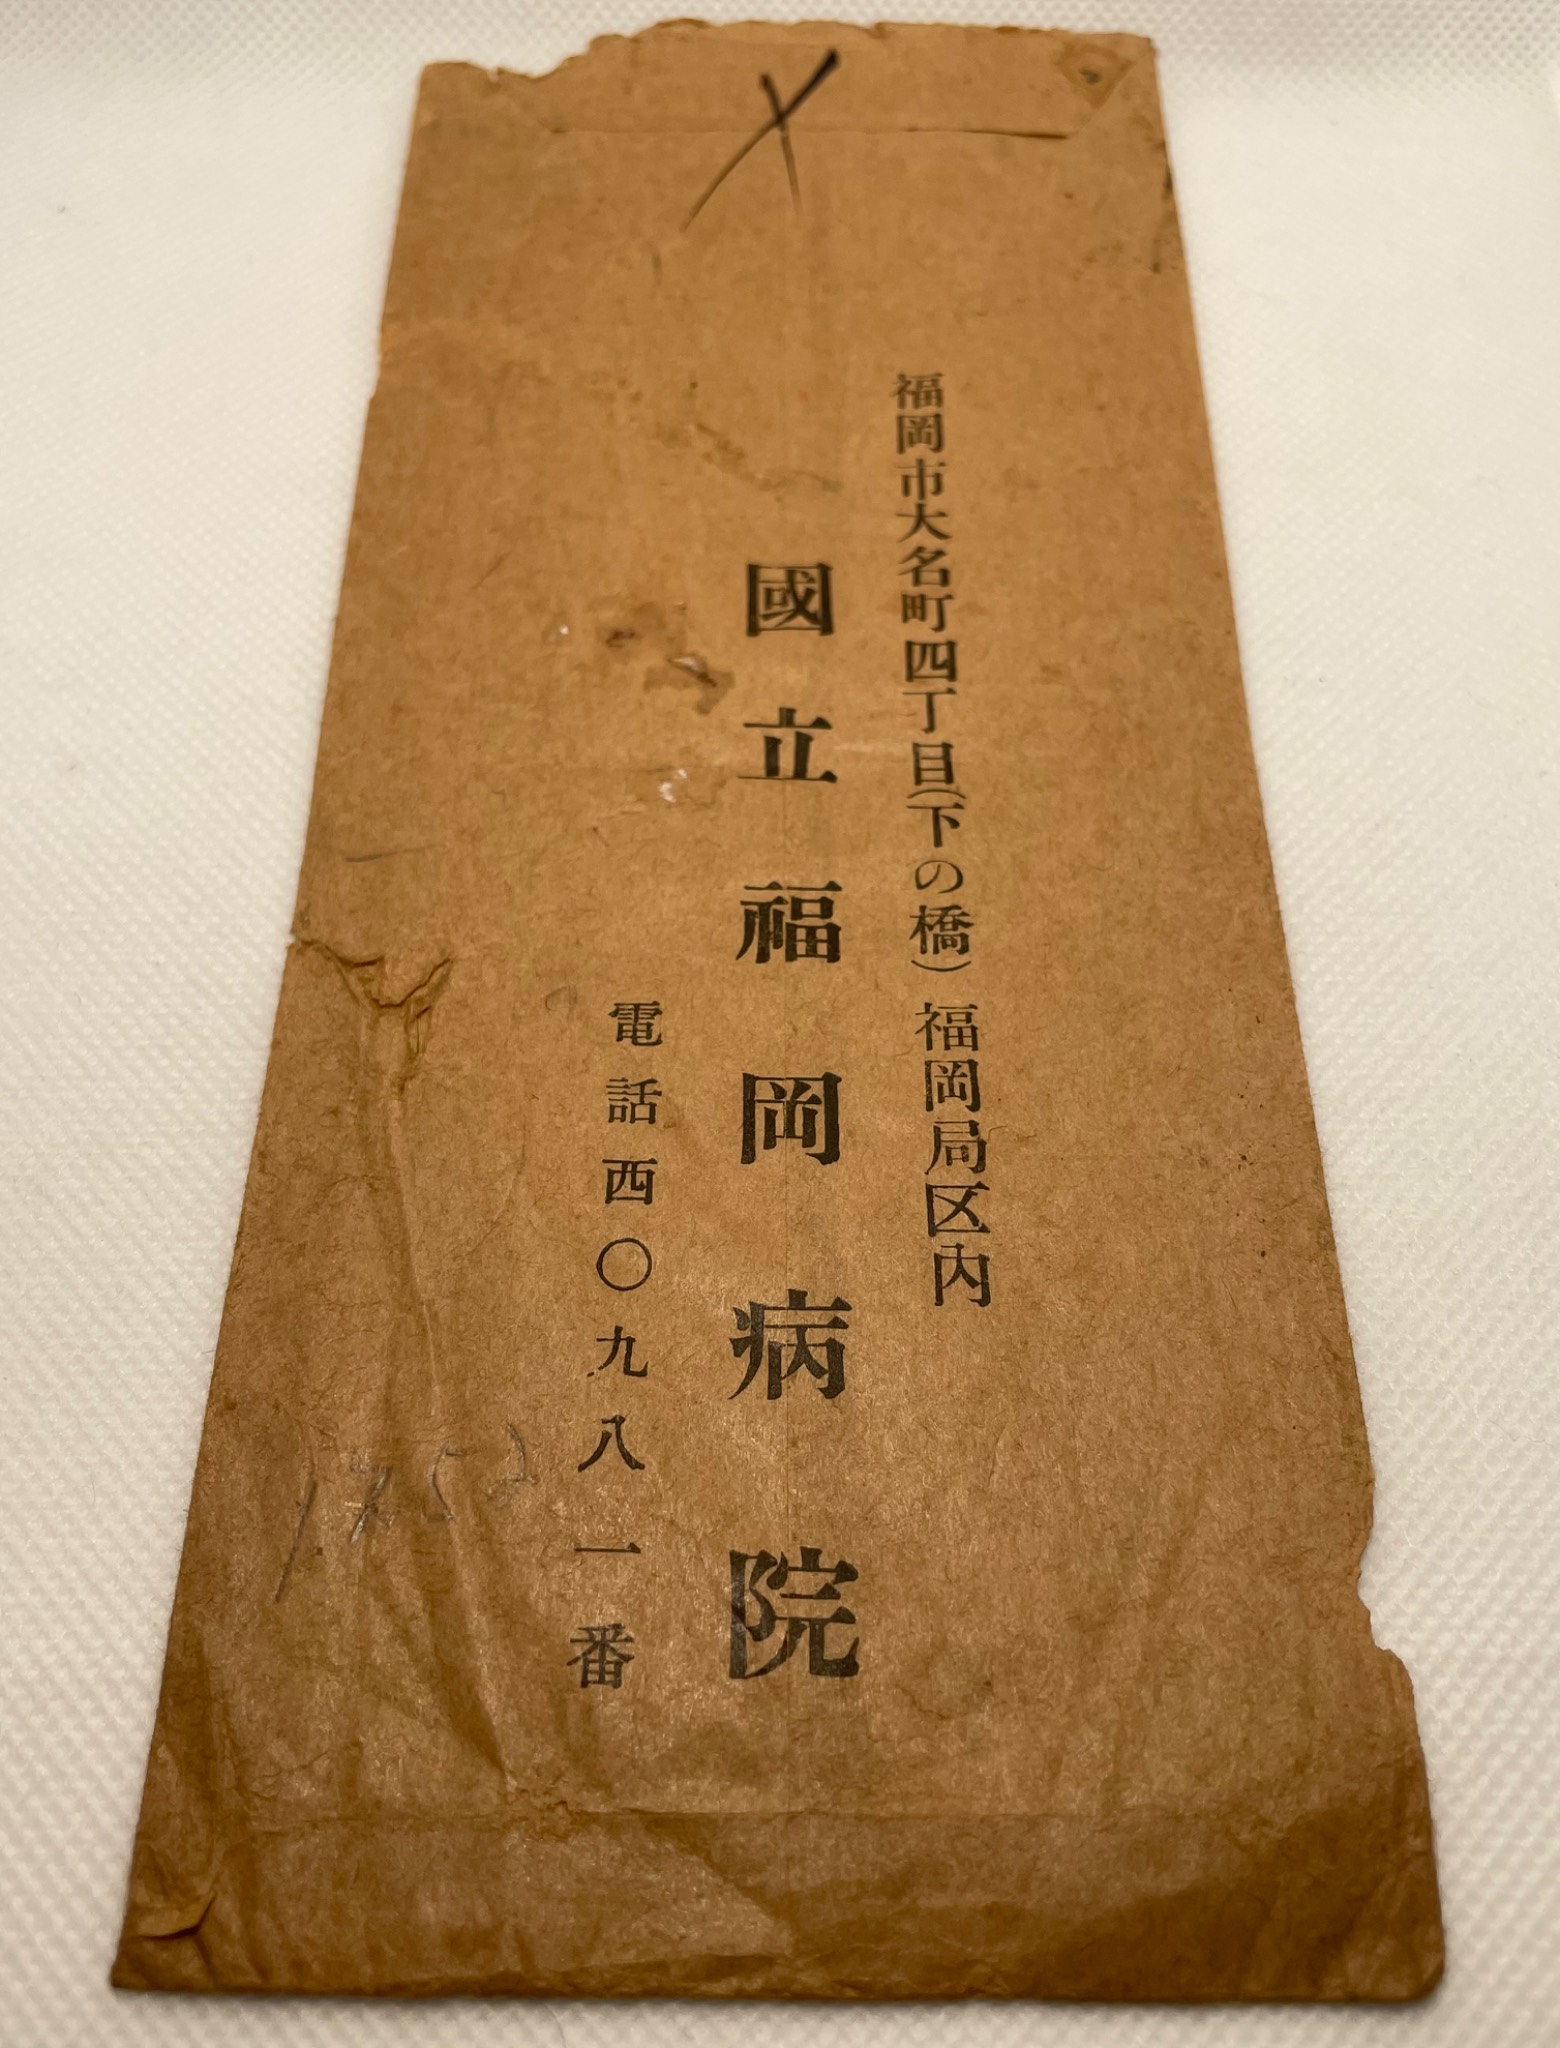 福岡市大名町四丁目(下の橋)福岡局区内
國立福岡病院
電話西〇九八一番
1952